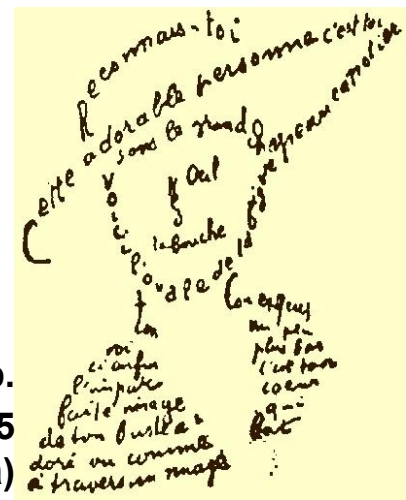 Reconnais-toi
Cette adorable personne c'est toi
sous le grand chapeau canotier
Œil
Nez
la bouche
Voici l'ovale de ta figure
ton
cou exquis
voi
ci enfin
l'impar
faite image
de ton buste a
doré vu comme
à travers un nuage
un peu
plus bas
c'est ton
coeur
qui
bat
.
5
)